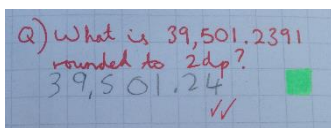 Q) What is 39,501.2391
rounded to 2dp?
39,501.24